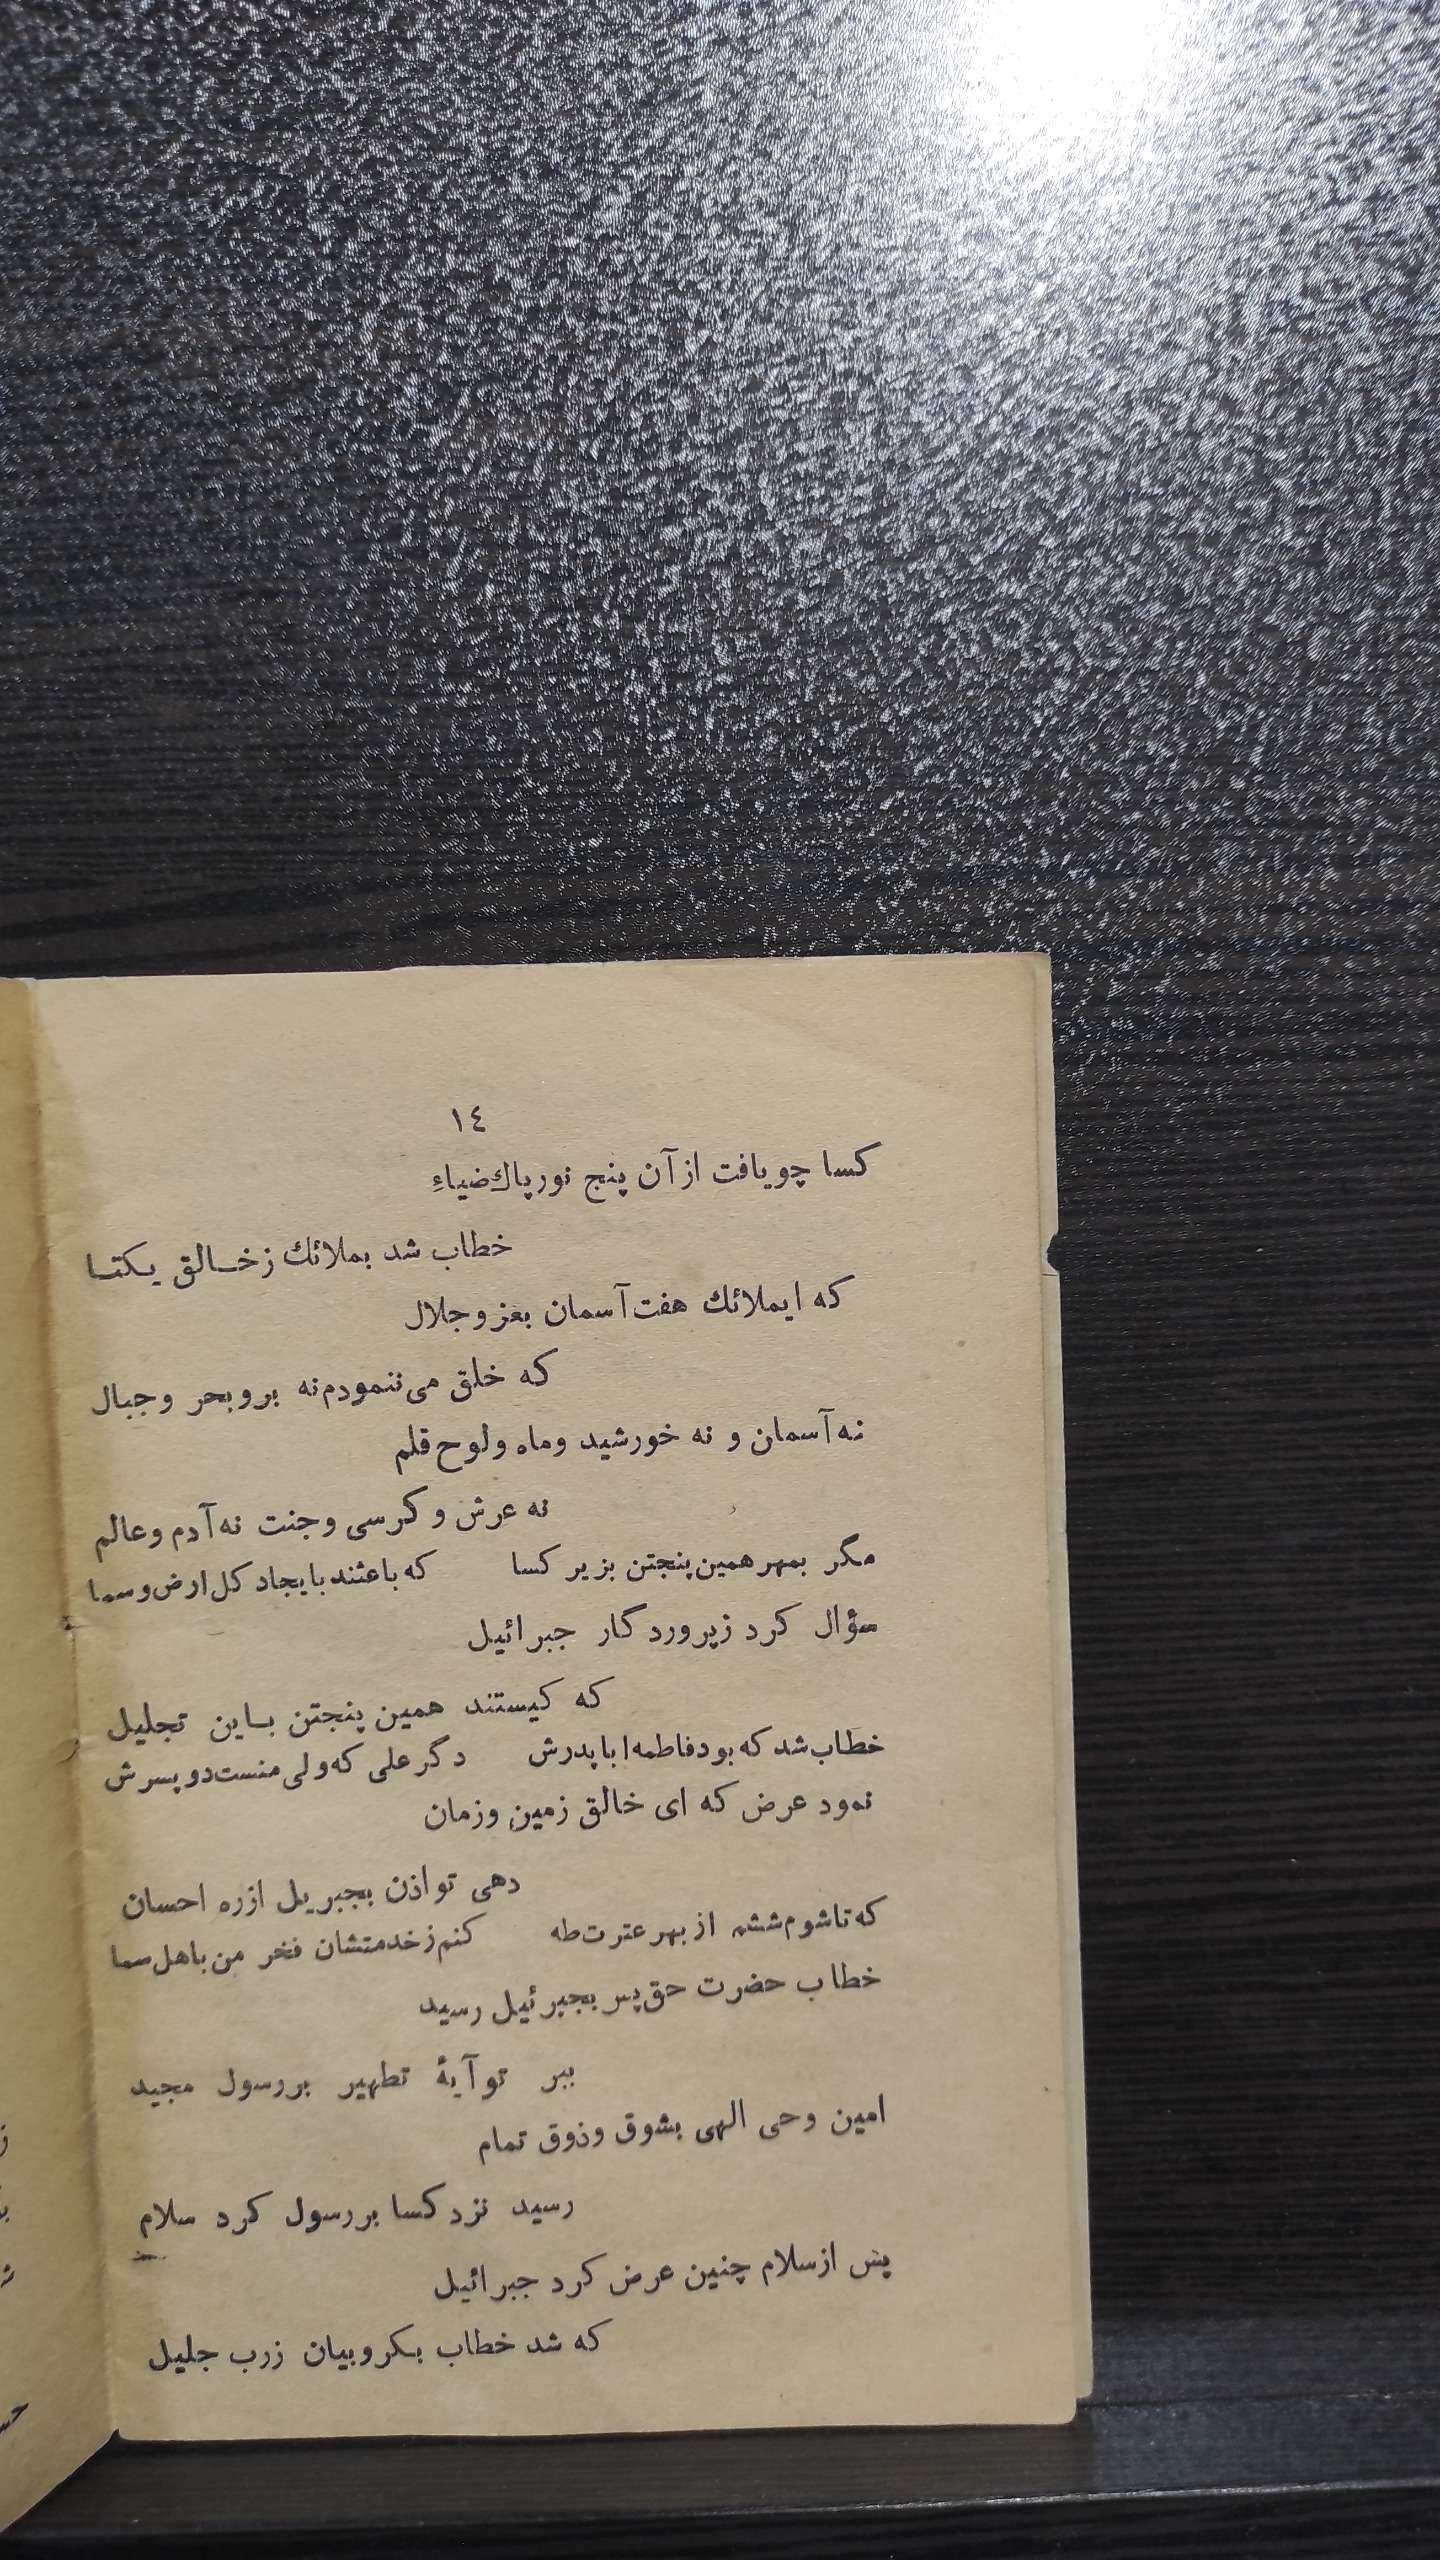 ١٤
كسا چو یافت از آن پنج نور پاك ضیاءِ
خطاب شد بملائك ز خـالق یـكتـا
كه ایملائك هفت آسمان بعز و جلال
كه خلق می ننمودم نه بر و بحر و جبال
نه آسمان و نه خورشید و ماه و لوح قلم
نه عرش و كرسی و جنت نه آدم و عالم
مگر بمهر همین پنجتن بزیر كسا كه باعثند بایجاد كل ارض و سما
سؤال كرد ز پروردگار جبرائیل
كه كیستند همین پنجتن بـاین تجلیل
خطاب شد كه بود فاطمه ابا پدرش دگر علی كه ولی منست دو پسرش
نمود عرض كه ای خالق زمین و زمان
دهی تو اذن بجبریل از ره احسان
كه تا شوم ششم از بهر عترت طه كنم ز خدمتشان فخر من باهل سما
خطاب حضرت حق پس بجبرئیل رسید
ببر تو آیۀ تطهیر بر رسول مجید
امین وحی الهی بشوق و ذوق تمام
رسید نزد كسا بر رسول كرد سلام
پس از سلام چنین عرض كرد جبرائیل
كه شد خطاب بكروبیان ز رب جلیل